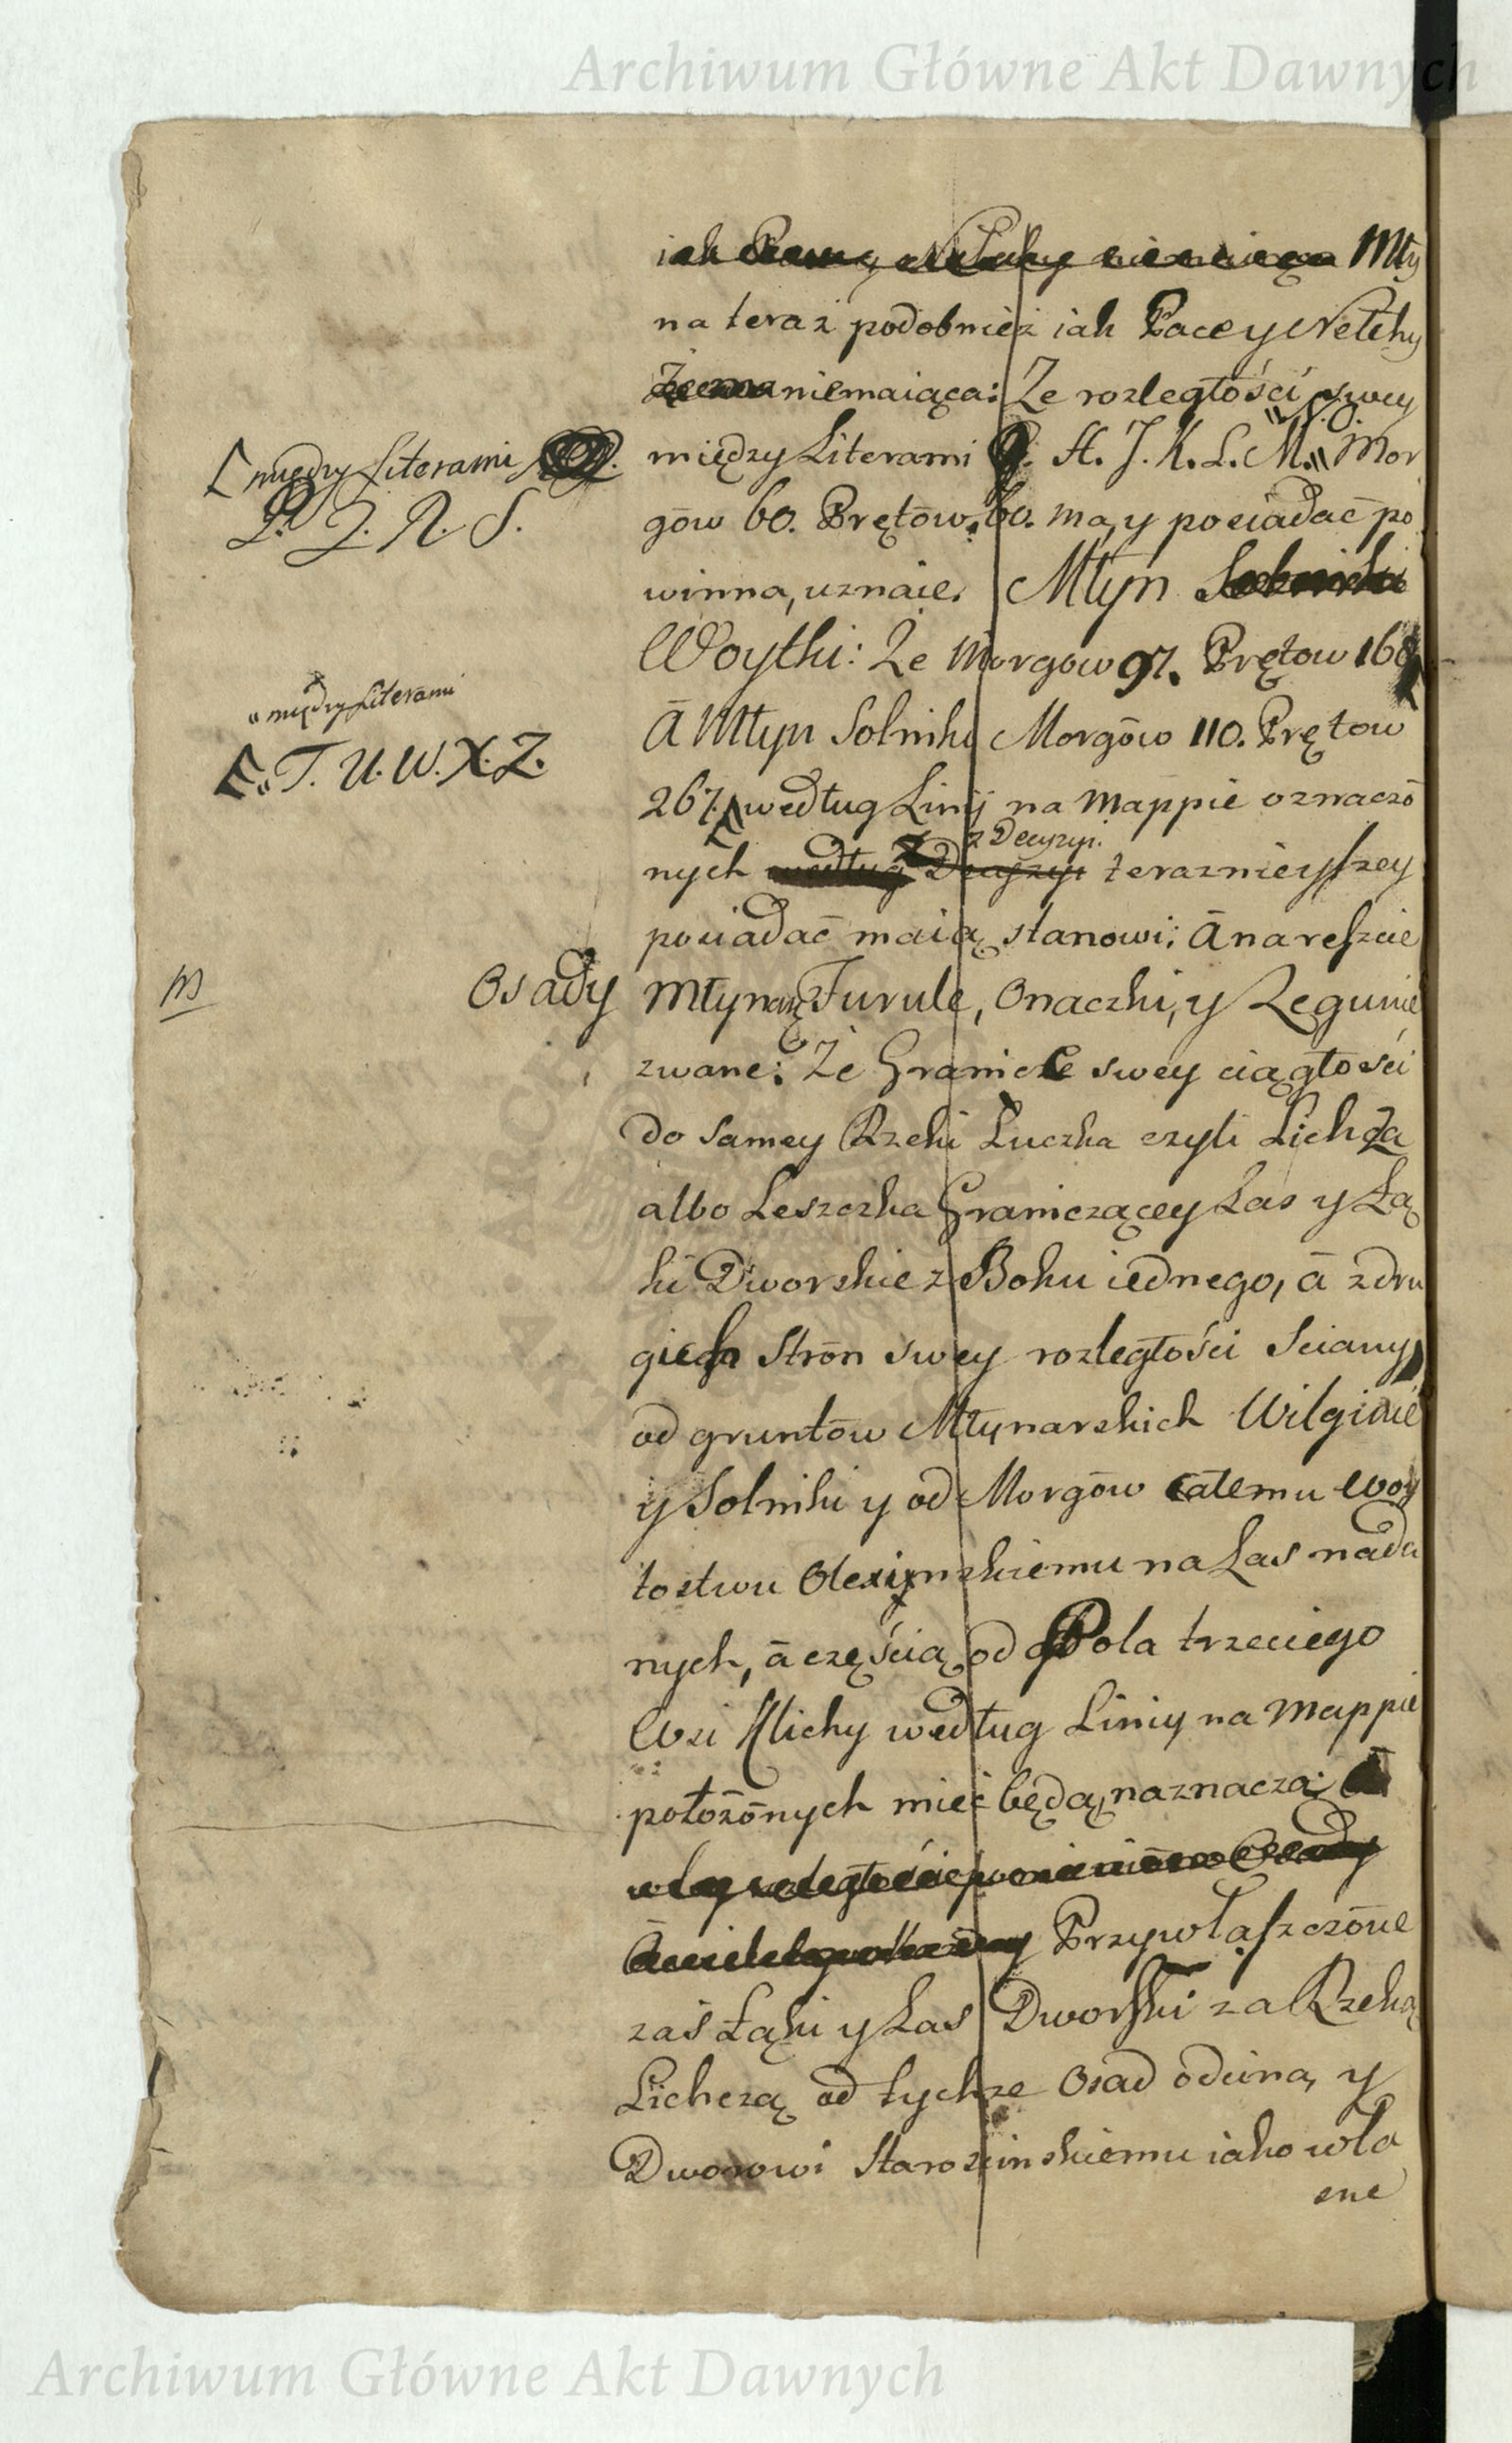 Archiwum Główne Akt Dawnych
iak Mły
na teraz podobnież iak Pace y Netthy
niemaiąca: Że rozległości swey
N. O.
między Literami G. H. J. K. L. M. Mor
gōw 60. Prętōw 60. ma, y posiadać po
winna, uznaie. Młyn
Woytki: Że Morgow 97. Prętow 168
ā Młyn Solniki Morgōw 110. Prętow
267. według Linij na Mappie oznaczō
z Decyzyi.
nych według Decyzyi teraznieyszey
posiadać maią stanowi: ā nareszcie
Osady Młynarz Furule, Onaczki, y Zegunie
zwane: Że Granice swey ciągłości
do samey Rzeki Luczka czyli Lichża
albo Leszczka Graniczącey Las y Łą
ki Dworskie z Boku iednego, ā z dru
gich strōn swey rozległości Sciany
od gruntōw Młynarskich Wilginie
y Solniki y od Morgōw całemu Woy
tostwu Olexinskiemu na Las nada
nych, ā częścią od Pola trzeciego
Wsi Klichy według Liniy na Mappie
położōnych mieć będą, naznacza:
Przywłaszczōne
zaś Łąki y Las Dworski za Rzeką
Lichczą od tychże Osad odcina, y
Dworowi Starozinskiemu iako wła
sne
[ między Literami
P. Q. R. S.
" między Literami
T. U. W. X. Z.
M
Archiwum Główne Akt Dawnych